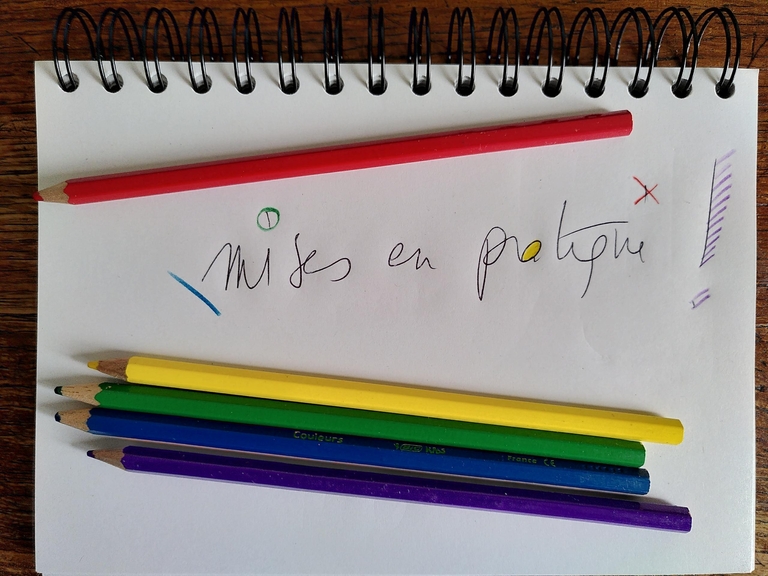 mises en pratique !
Couleurs
France CE